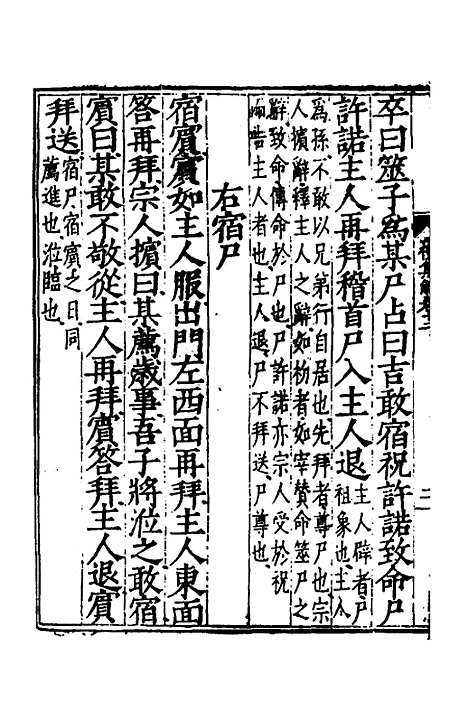 卒曰筮子爲某尸占曰吉敢宿祝許諾致命尸
許諾主人再拜稽首尸入主人退主人辟者尸
祖象也主人
爲孫不敢以兄弟行自居也先拜者尊尸也宗
人擯辭釋主人之辭如初者如宰贊命筮尸之
辭致命傳命於尸也尸許諾亦宗人受於祝
而告主人者也主人退尸不拜送尸尊也
右宿尸
宿賓賓如主人服出門左西面再拜主人東面
答再拜宗人擯曰某薦歲事吾子將涖之敢宿
賓曰某敢不敬從主人再拜賓答拜主人退賓
拜送宿尸宿賓之日同
薦進也涖臨也